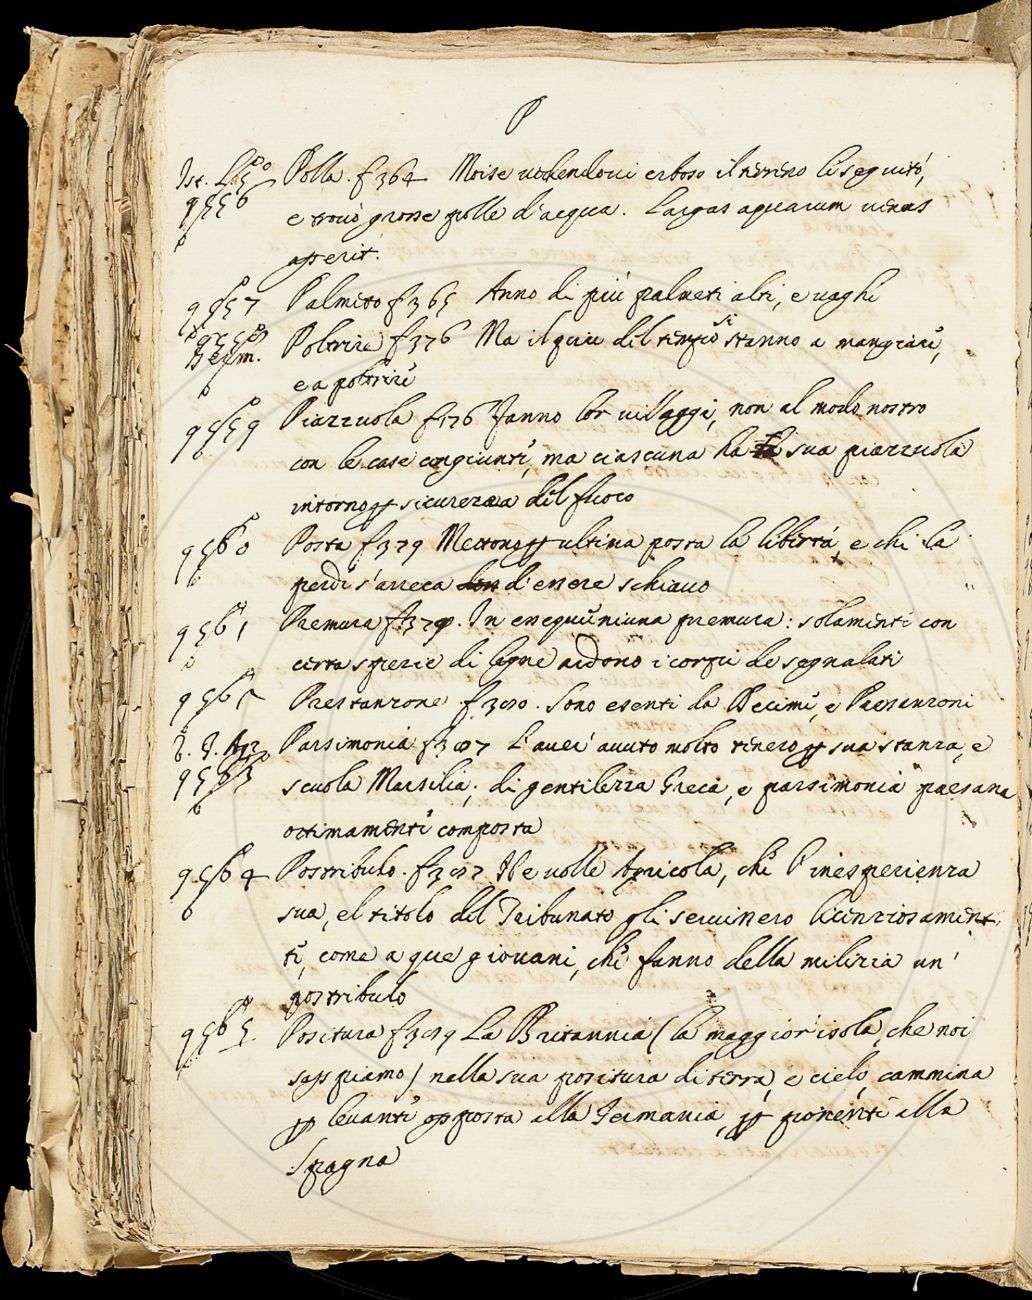 P
Ist. L. 5º Polla. f 364 Moise vedendovi erboso il terreno li seguitò,
9556 e trovò grosse polle d'acqua. Largas aquarum venas
aperit.
9557 Palmeto f 365 Anno di più palmeti alti, e vaghi
9558 Poltrire f 376 Ma il più del tempo si stanno a mangiare,
Germ. e a poltrire
9559 Piazzuola f 376 Fanno lor villaggi, non al modo nostro
con le case congiunte, ma ciascuna ha la sua piazzuola
intorno p sicurezza del fuoco
9560 Posta f 379 Mettono p ultima posta la libertà, e chi la
perde s'arreca d'essere schiavo
9561 Premura f 379. In esequie niuna premura: solamente con
certa spezie di legne ardono i corpi de segnalati
9562 Prestanzone f 380. Sono esenti da Decime, e Presanzoni
Parsimonia f 387 L'aver avuto molto tenero p sua stanza, e
9563 scuola Marsilia, di gentilezza Greca, e parsimonia paesana
ottimamente composta
9564 Postribulo. f 387 Ne volle Agricola, che l'inesperienza
sua, e'l titolo del Tribunato gli servissero licenziosamen
te, come a que giovani, che fanno della milizia un'
postribulo
9565 Positura f 389 La Britannia (la maggior' isola, che noi
sappiamo) nella sua positura di terra, e cielo, cammina
p levante opposta alla Germania, p ponente alla
Spagna